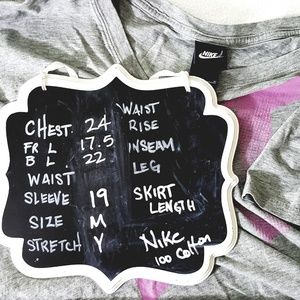 NIKE
CHEST 24
FR L 17.5
B L 22
WAIST
SLEEVE 19
SIZE M
STRETCH Y
WAIST
RISE
INSEAM
LEG
SKIRT
LENGTH
Nike
100 Cotton